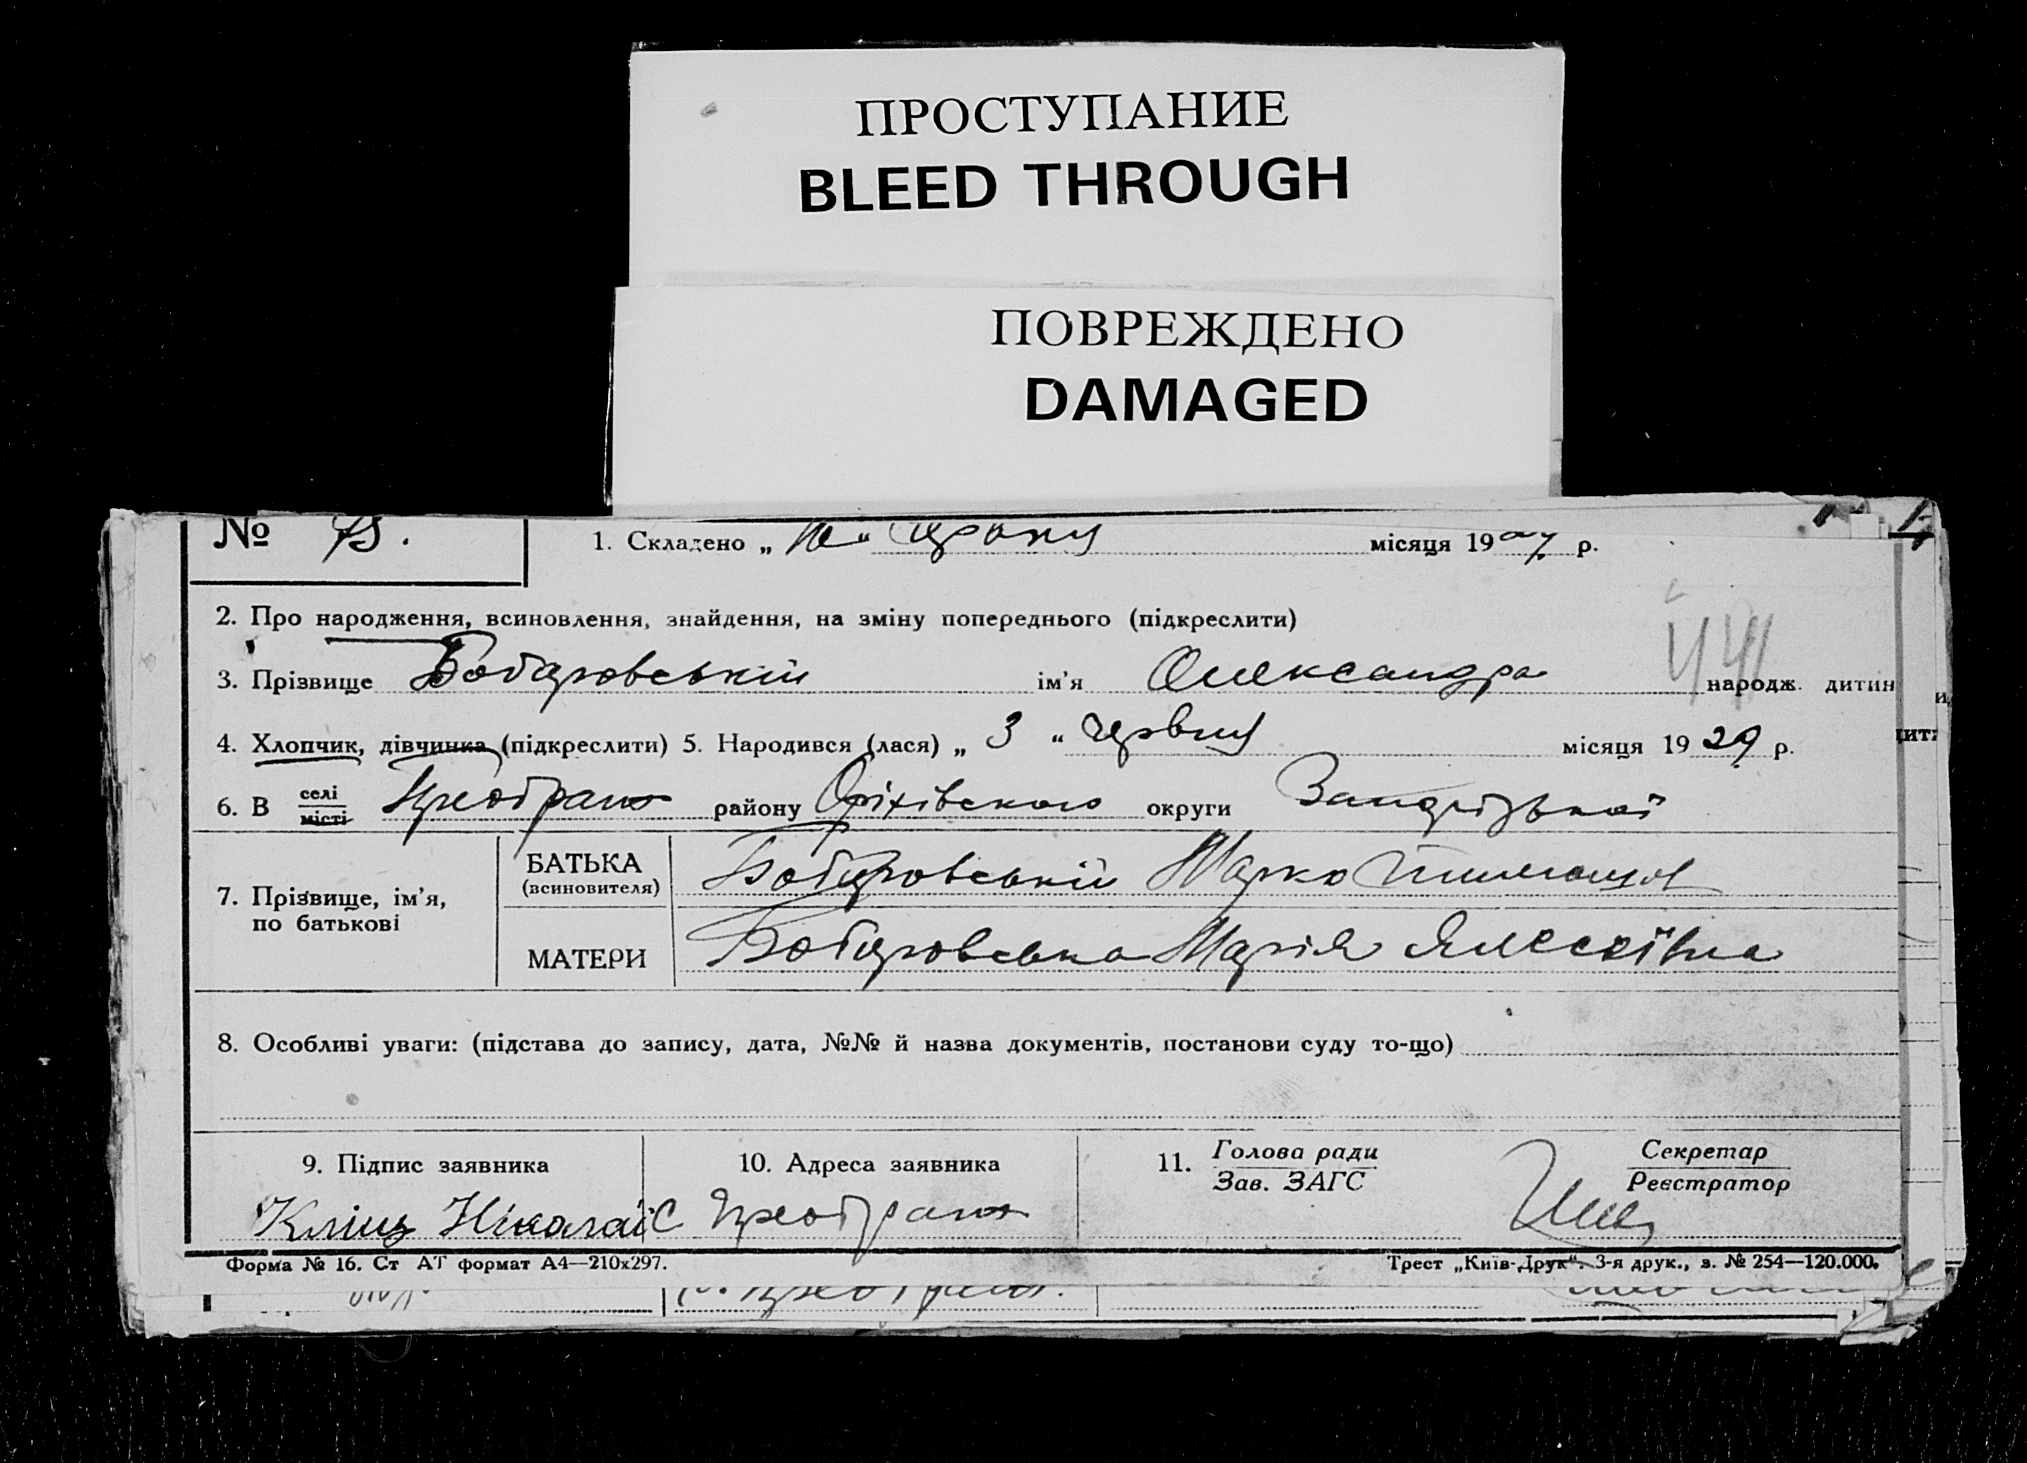 ПРОСТУПАНИЕ
BLEED THROUGH
ПОВРЕЖДЕНО
DAMAGED
№ 75. 1. Складено „ 10 “ червня місяця 1929 р.
2. Про народження, всиновлення, знайдення, на зміну попереднього (підкреслити)
441
3. Прізвище Бобировський ім’я Олександра народж. дитин
4. Хлопчик, дівчинка (підкреслити) 5. Народився (лася) „ 3 “ червня місяця 1929 р.
6. В селі
місті Преображ району Оріхівського округи Запорізької
7. Прізвище, ім’я,
по батькові
БАТЬКА
(всиновителя) Бобировський Марко
МАТЕРИ Бобировська Марія Алексіївна
8. Особливі уваги: (підстава до запису, дата, №№ й назва документів, постанови суду то-що)
9. Підпис заявника 10. Адреса заявника 11. Голова ради
Зав. ЗАГС Секретар
Реєстратор
Ніколай С Преображ
Форма № 16. Ст АТ формат А4—210х297. Трест „Київ-Друк“. 3-я друк., з. № 254—120.000.